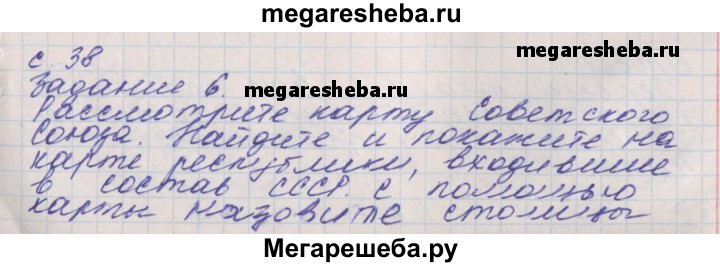 megaresheba.ru
с. 38
megaresheba.ru
Задание 6.
megaresheba.ru
Рассмотрите карту Советского
Союза. Найдите и покажите на
карте республики, входившие
в состав СССР. С помощью
карты назовите столицы
Мегарешеба.ру